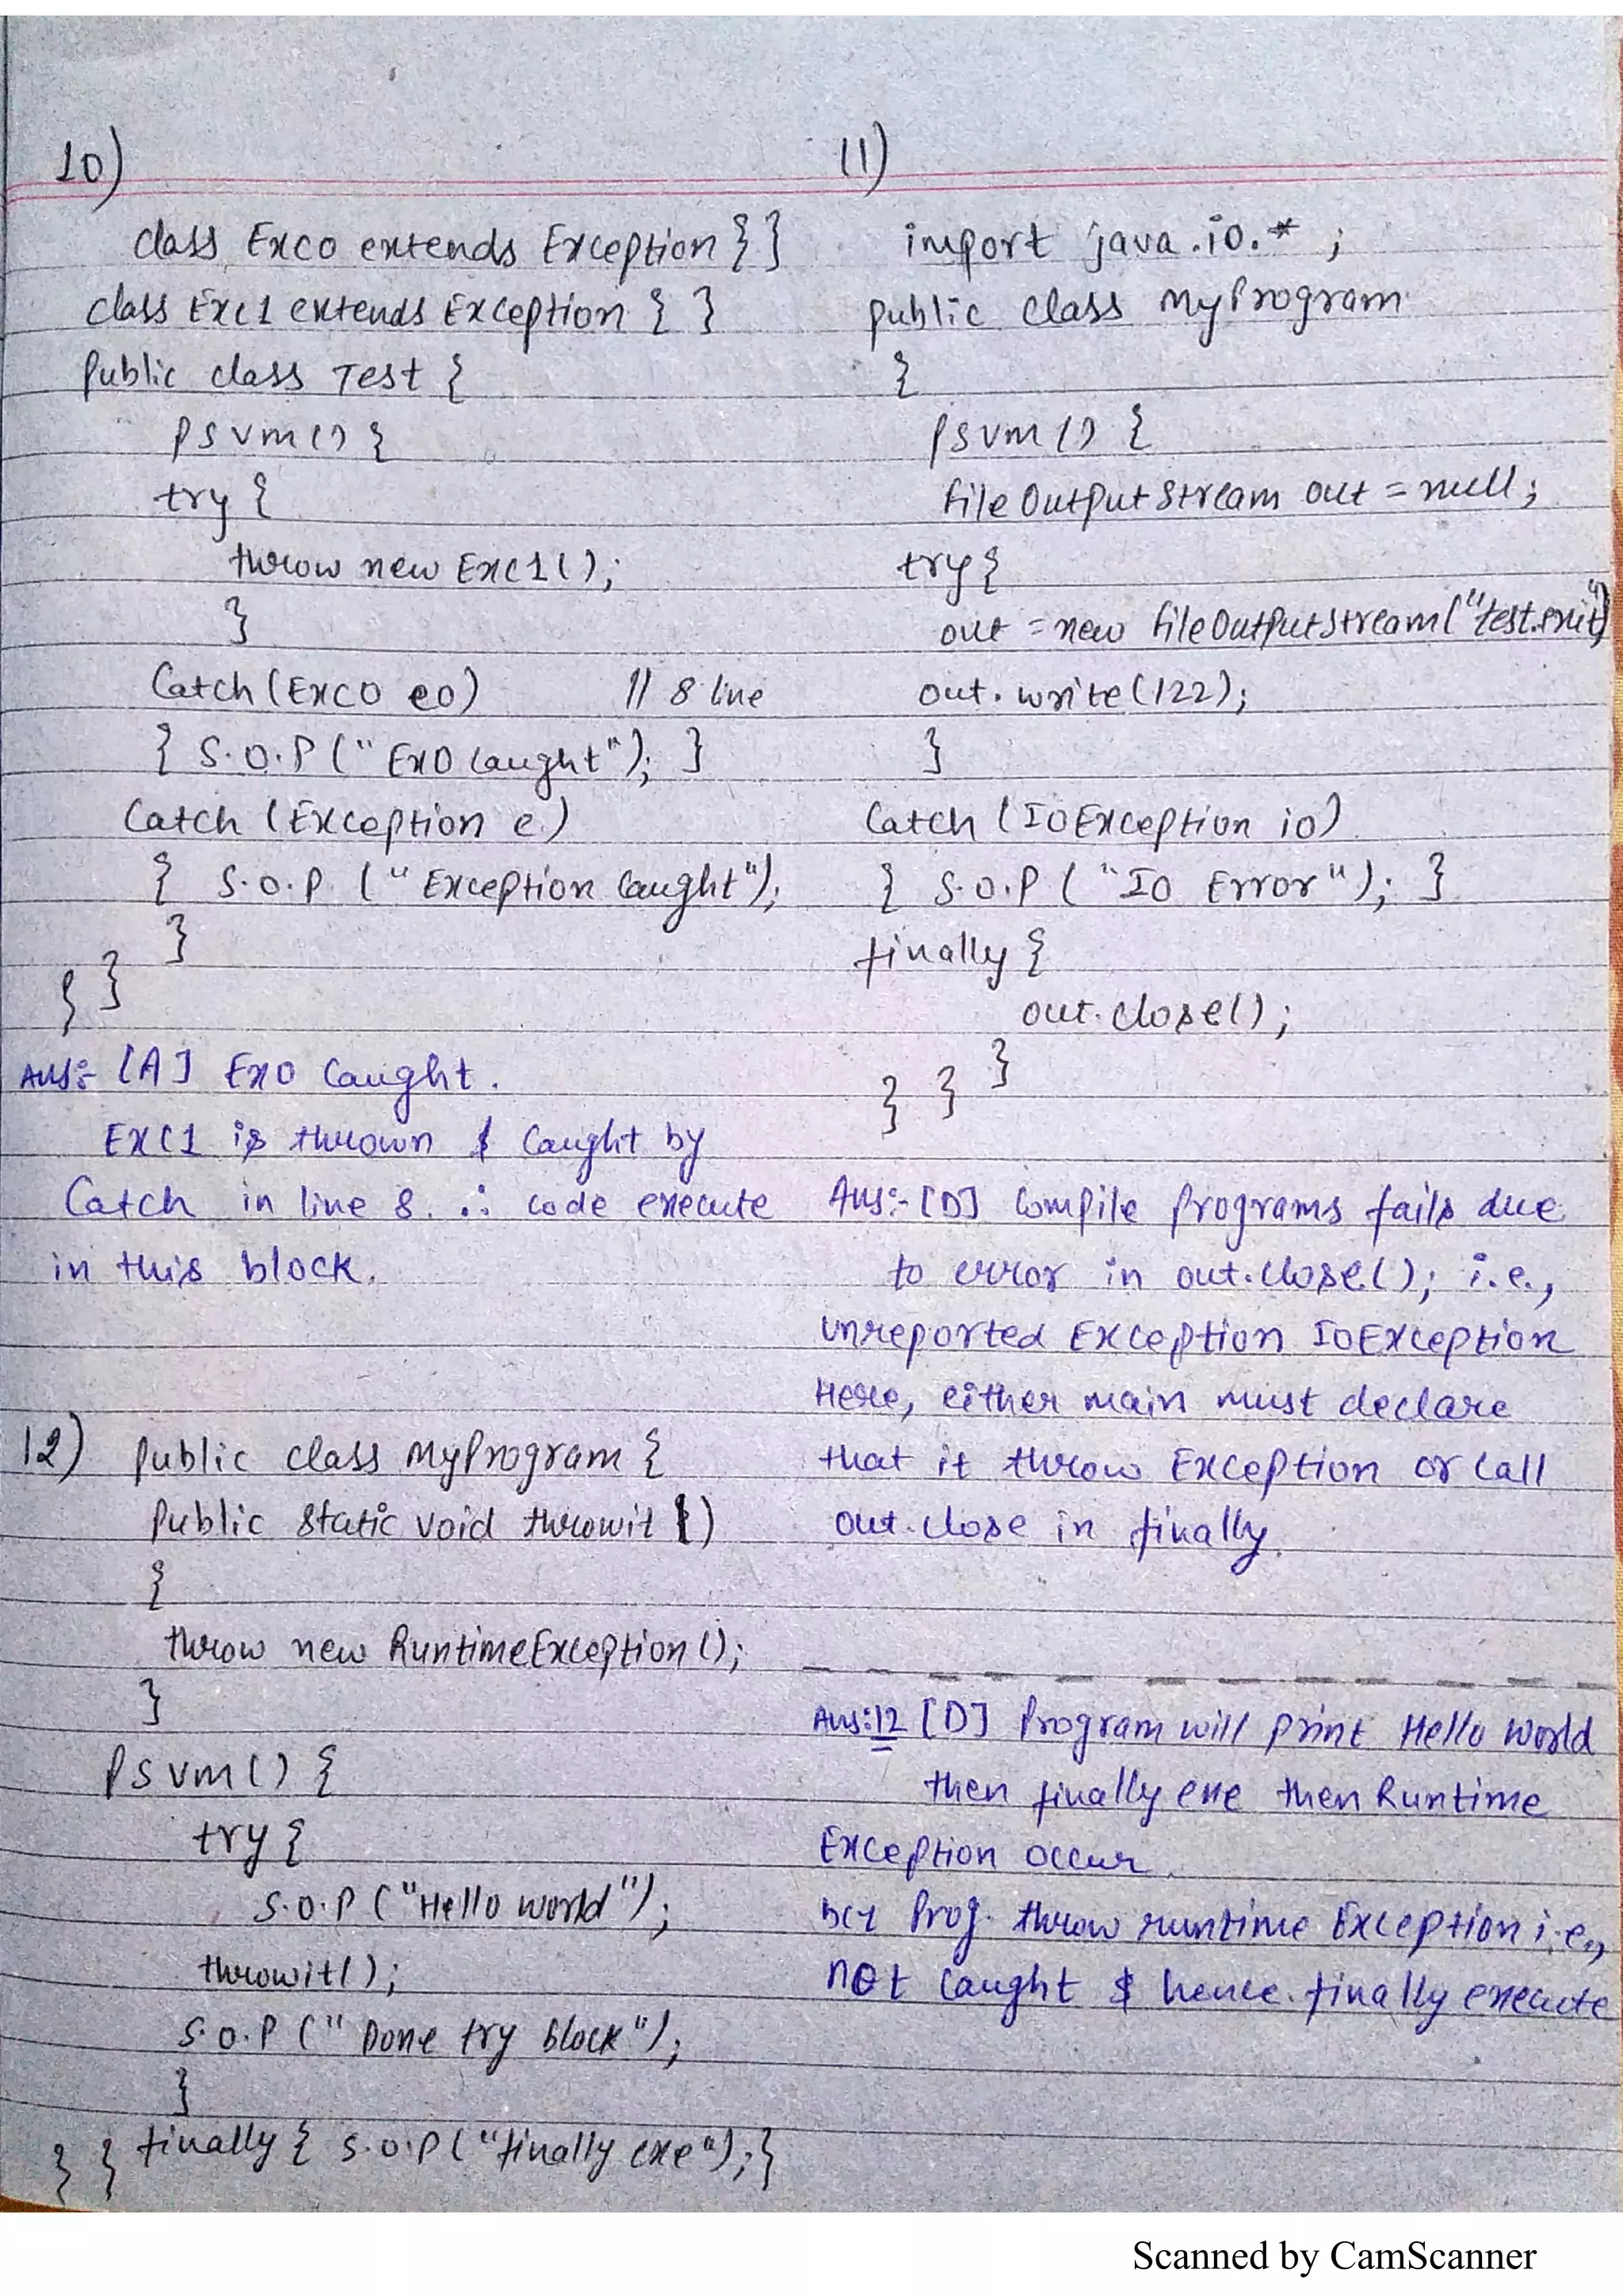 10)
class Exc0 extends Exception { }
class Exc1 extends Exception { }
Public class Test {
psvm() {
try {
throw new Exc1();
}
Catch (Exc0 e0) // 8 line
{ S.O.P (" Ex0 caught"); }
Catch (Exception e)
{ S.O.P. (" Exception Caught");
}
} }
Ans:- [A] Ex0 Caught.
EXC1 is thrown & Caught by
Catch in line 8. ∴ code execute
in this block.
11)
import java.io.* ;
Public class MyProgram
{
psvm () {
File OutPut Stream out = null;
try {
out = new FileOutPutStream("test.
out. write (122);
}
Catch (IOException io)
{ S.O.P ( "IO Error"); }
finally {
out. close();
}
} }
Ans:- [D] Compile Programs fails due
to error in out.close(); i.e.,
Unreported Exception IOException
Here, either main must declare
that it throw Exception or call
out.close in finally.
12) Public class MyProgram {
Public static void throwit ()
{
throw new RuntimeException ();
}
PSVM () {
try {
S.O.P ("Hello world");
throwit();
S.O.P (" Done try block");
}
finally { S.O.P ("finally exe"); }
} }
Ans:12 [D] Program will print Hello World
then finally exe then Runtime
Exception occur.
bcz Prog. throw runtime Exception i.e.,
not Caught & hence. finally execute
Scanned by CamScanner